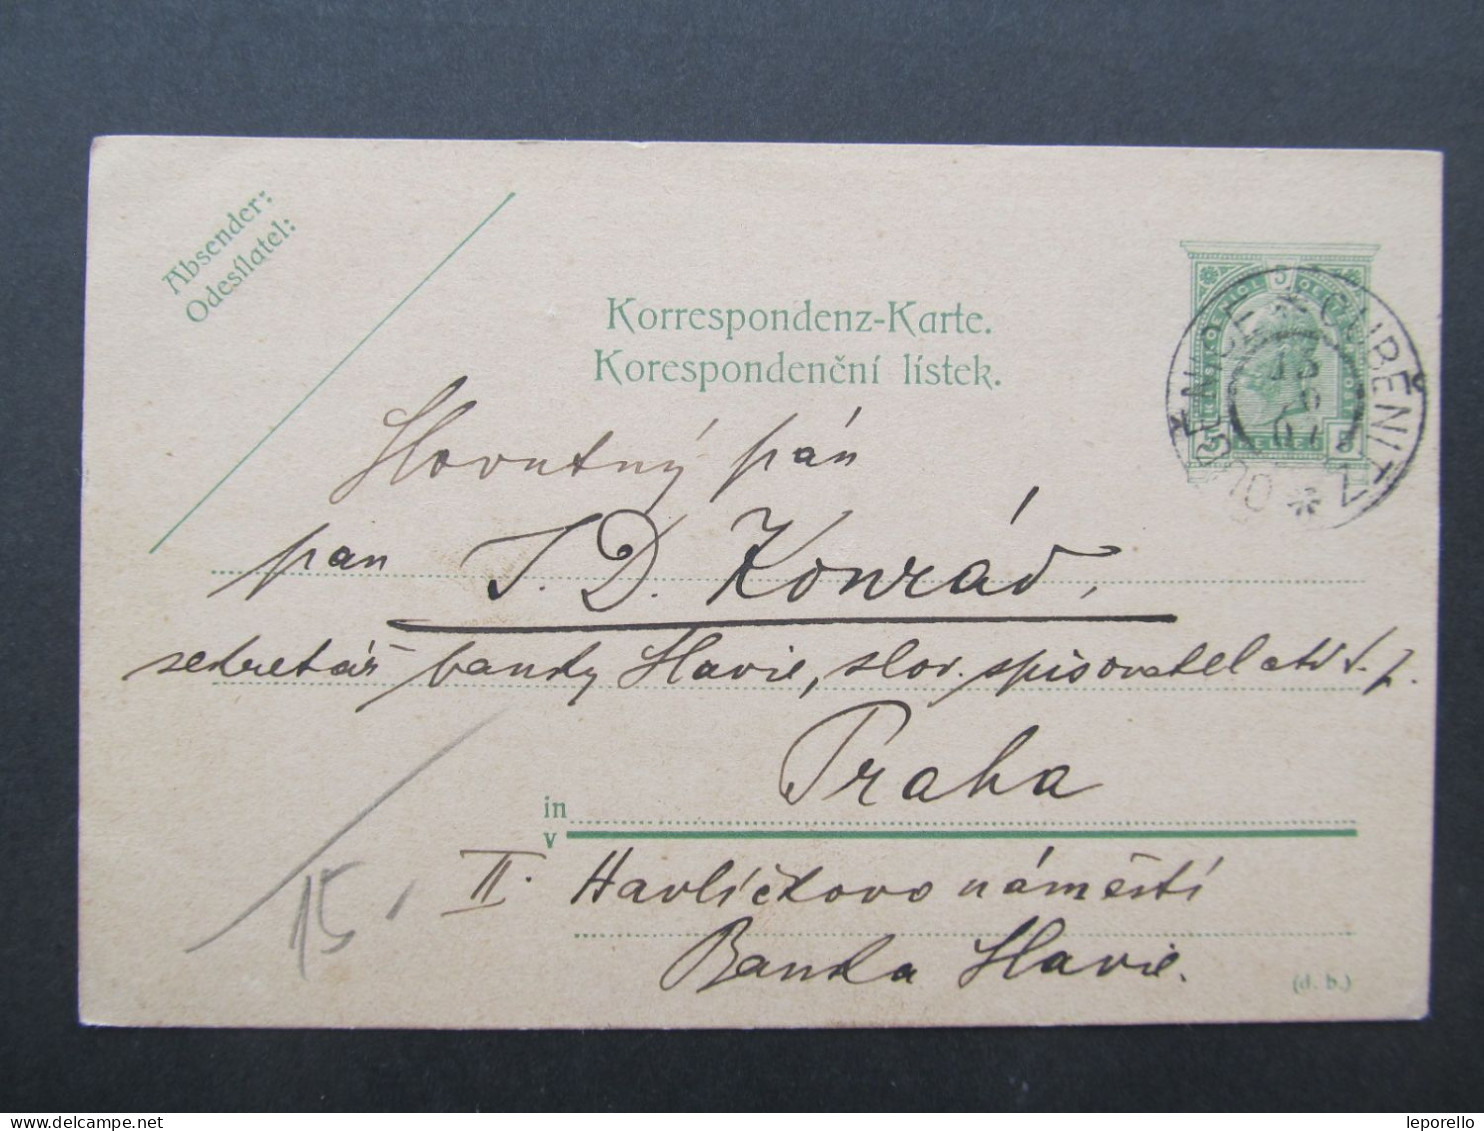 Absender:
Odesílatel:
Korrespondenz-Karte.
Korespondenční lístek.
5
Slovutný pán
pan J. D. Konrád,
sekretář banky Slavie, slov. spisovatel atd. t. j.
Praha
in
v
II. Havlíčkovo náměstí
Banka Slavie.
(d. b.)
15.
leporello